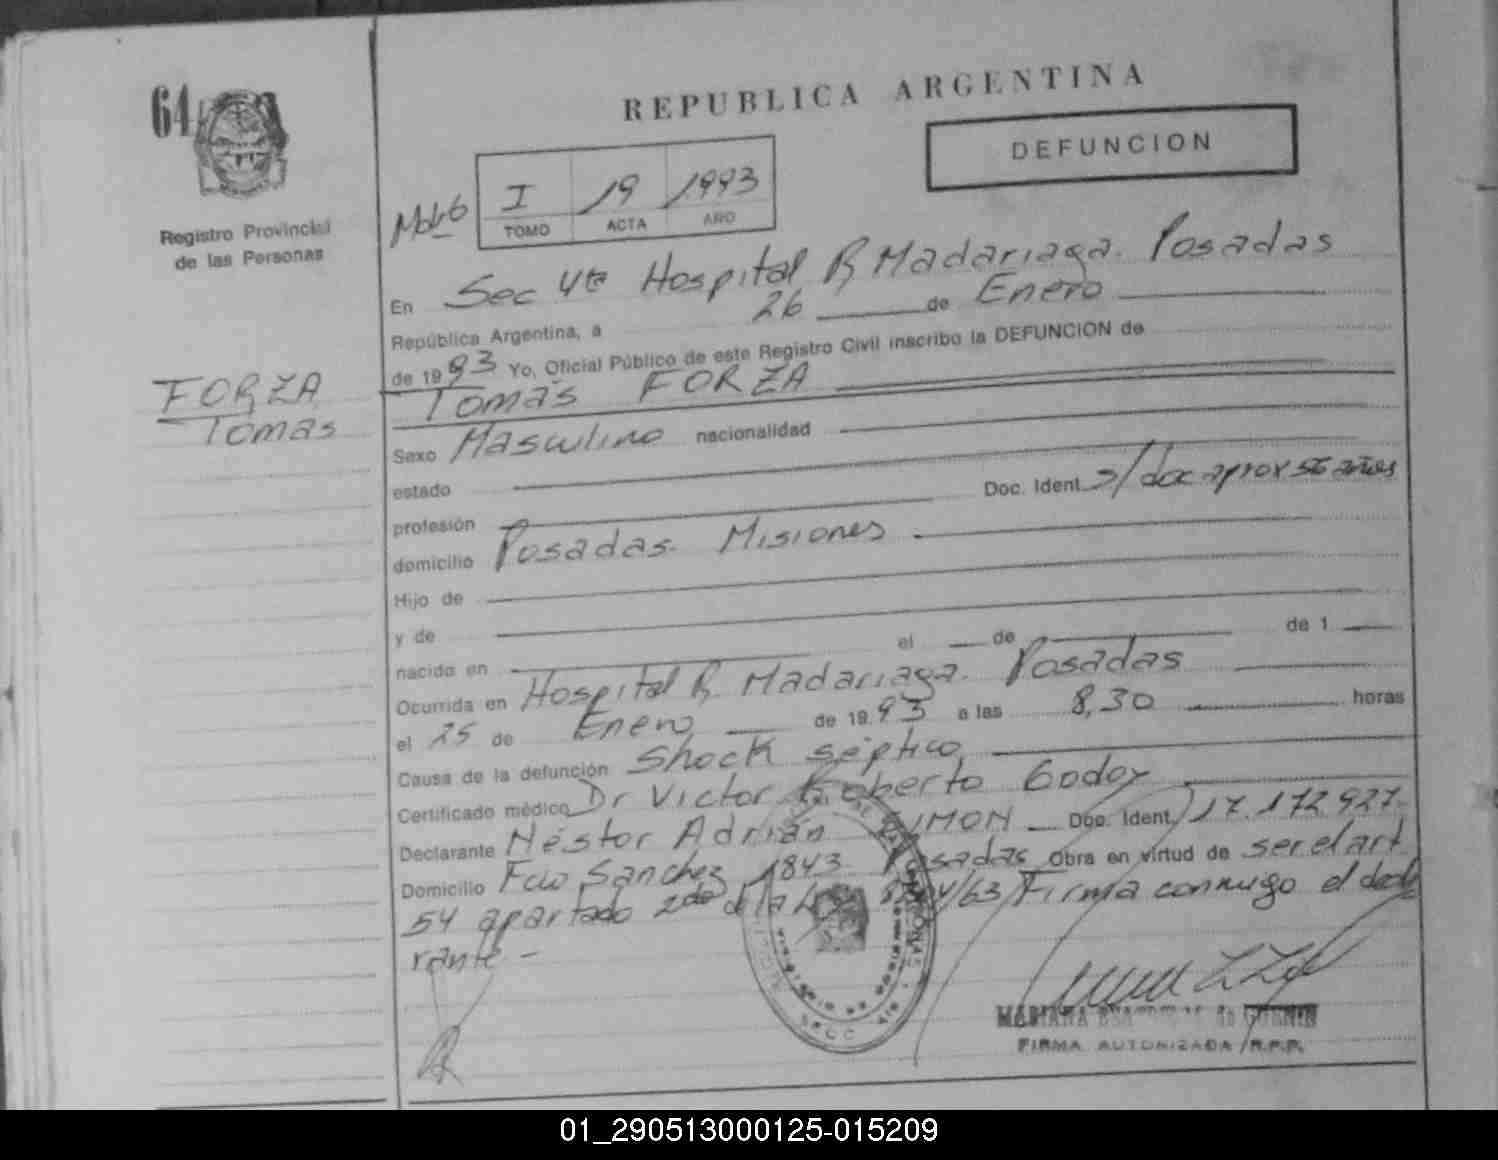 64
REPUBLICA ARGENTINA
DEFUNCION
Registro Provincial
de las Personas
I 19 1993
TOMO ACTA AÑO
En Sec 4ta Hospital R Madariaga. Posadas
República Argentina, a 26 de Enero
de 1993 Yo, Oficial Público de este Registro Civil inscribo la DEFUNCION de
FORZA
Tomas
Tomás FORZA
Sexo Masculino nacionalidad
estado
profesión Doc. Ident. s/doc aprox 55 años
domicilio Posadas. Misiones
Hijo de
y de
nacido en el de de 1
Ocurrida en Hospital R. Madariaga. Posadas
el 25 de Enero de 1993 a las 8,30 horas
Causa de la defunción Shock séptico
Certificado médico Dr Victor Roberto Godoy
Declarante Néstor Adrián Doc. Ident. 17.172.927
Domicilio Fcio Sanchez 1843 Posadas Obra en virtud de ser el art
54 apartado 2do de la Ley /63 Firma conmigo el decla
rante -
MARIANA
FIRMA AUTORIZADA R.P.P.
01_290513000125-015209